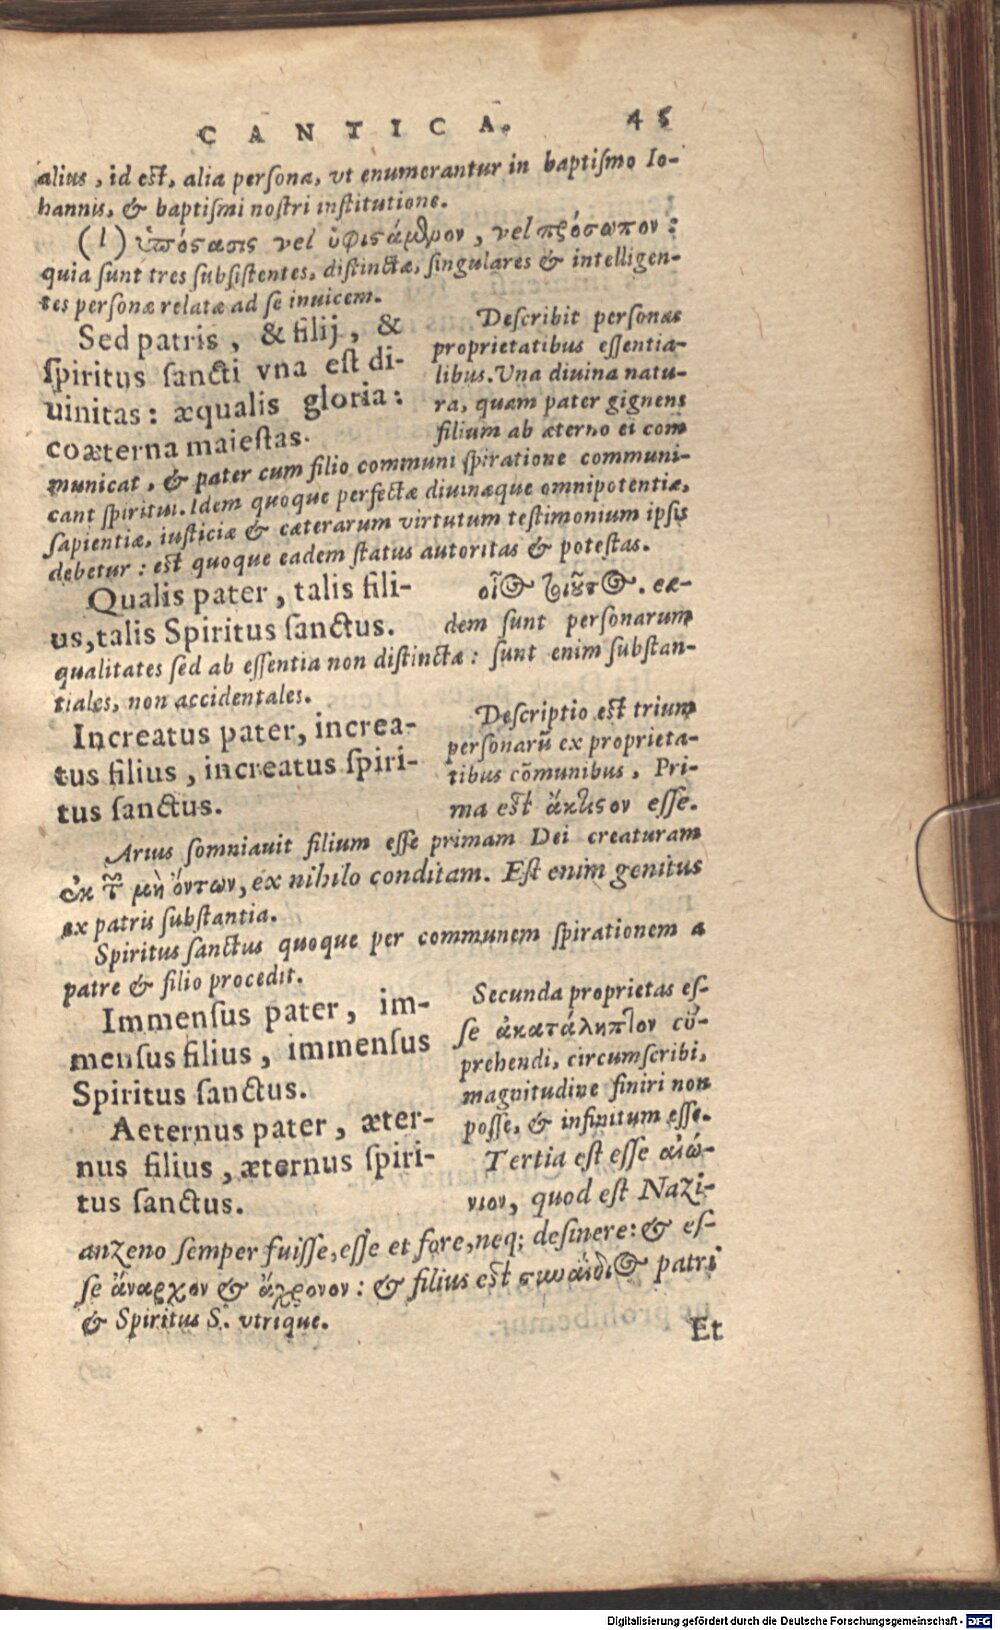 CANTICA. 45
alius, id est, alia persona, vt enumerantur in baptiſmo Io-
hannis, & baptiſmi noſtri inſtitutione.
(1) ὑπόςασις vel ὑφιςάμενον, vel πρόσωπον:
quia ſunt tres ſubſiſtentes, diſtinctæ, ſingulares & intelligen-
tes perſonæ relatæ ad ſe inuicem.
Sed patris, & filij, &
ſpiritus ſancti vna eſt di-
uinitas: æqualis gloria:
coæterna maieſtas.
Deſcribit perſonas
proprietatibus eſſentia-
libus. Vna diuina natu-
ra, quam pater gignens
filium ab æterno ei com
municat, & pater cum filio communi ſpiratione communi-
cant ſpiritui. Idem quoque perfectæ diuinæque omnipotentiæ,
ſapientiæ, iuſticiæ & cæterarum virtutum teſtimonium ipſis
debetur: eſt quoque eadem ſtatus autoritas & poteſtas.
Qualis pater, talis fili-
us, talis Spiritus ſanctus.
οἷος τοιοῦτος. ea-
dem ſunt perſonarum
qualitates ſed ab eſſentia non diſtinctæ: ſunt enim ſubſtan-
tiales, non accidentales.
Increatus pater, increa-
tus filius, increatus ſpiri-
tus ſanctus.
Deſcriptio eſt trium
perſonarũ ex proprieta-
tibus cõmunibus, Pri-
ma eſt ἄκτιςον eſſe.
Arius ſomniauit filium eſſe primam Dei creaturam
ἐκ τῶν μὴ ὄντων, ex nihilo conditam. Eſt enim genitus
ex patris ſubſtantia.
Spiritus ſanctus quoque per communem ſpirationem a
patre & filio procedit.
Immenſus pater, im-
menſus filius, immenſus
Spiritus ſanctus.
Aeternus pater, æter-
nus filius, æternus ſpiri-
tus ſanctus.
Secunda proprietas eſ-
ſe ἀκατάληπτον cõ-
prehendi, circumſcribi,
magnitudine finiri non
poſſe, & infinitum eſſe.
Tertia eſt eſſe αἰώ-
νιον, quod eſt Nazi-
anzeno ſemper fuiſſe, eſſe et fore, neq; deſinere: & eſ-
ſe ἄναρχον & ἄχρονον: & filius eſt συναίδιος patri
& Spiritus S. vtrique.
Et
Digitalisierung gefördert durch die Deutsche Forschungsgemeinschaft - DFG